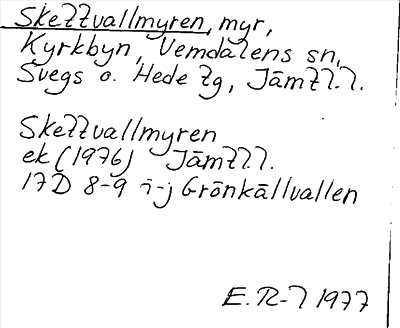 Skellvallmyren, myr,
Kyrkbyn, Vemdalens sn,
Svegs o. Hede tg, Jämtl.l.
Skellvallmyren
ek (1976) Jämtl.l.
17D 8-9 i-j Grönkällvallen
E. R-l 1977